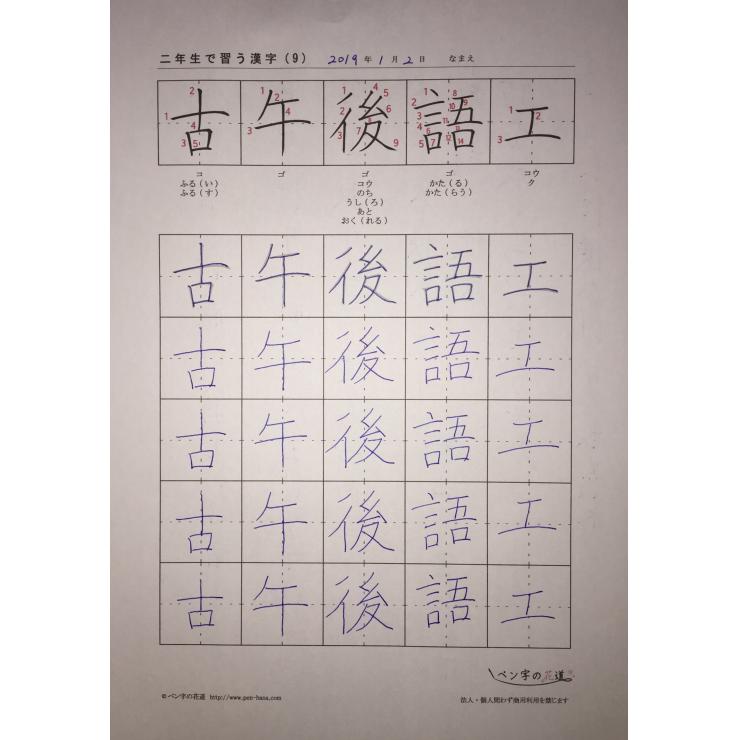 二年生で習う漢字（9） 2019年1月2日 なまえ
古 午 後 語 工
コ ゴ ゴ ゴ コウ
ふる（い） コウ かた（る） ク
ふる（す） のち かた（らう）
うし（ろ）
あと
おく（れる）
古 午 後 語 工
古 午 後 語 工
古 午 後 語 工
古 午 後 語 工
古 午 後 語 工
ペン字の花道
©ペン字の花道 http://www.pen-hana.com 法人・個人問わず商用利用を禁じます